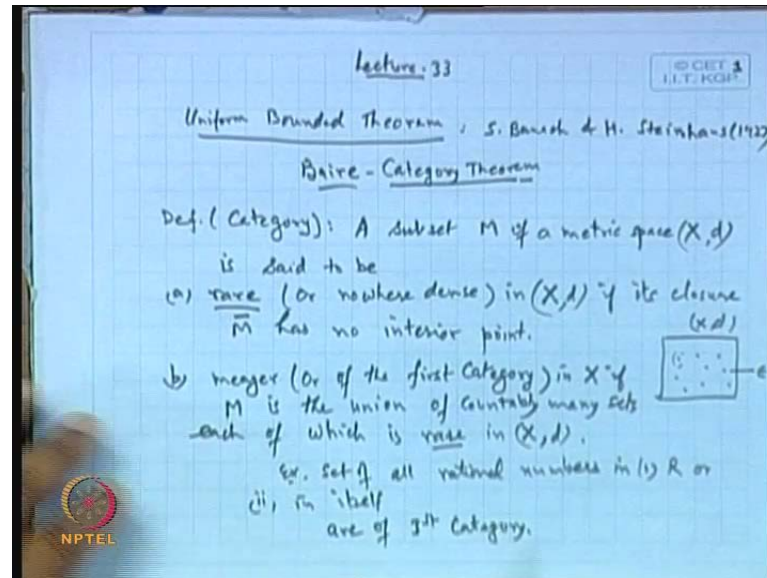 Lecture-33
© CET 1
I.I.T. KGP
Uniform Bounded Theorem, S. Banach & H. Steinhaus (1927)
Baire - Category Theorem
Def. (Category): A subset M of a metric space (X,d)
is said to be
(a) rare (Or nowhere dense) in (X,d) if its closure
M̄ has no interior point.
(X,d)
b) meager (Or of the first Category) in X if
M is the union of countably many sets
each of which is rare in (X,d).
Ex. Set of all rational numbers in (i) R or
(ii) in itself
are of Ist Catagory.
NPTEL